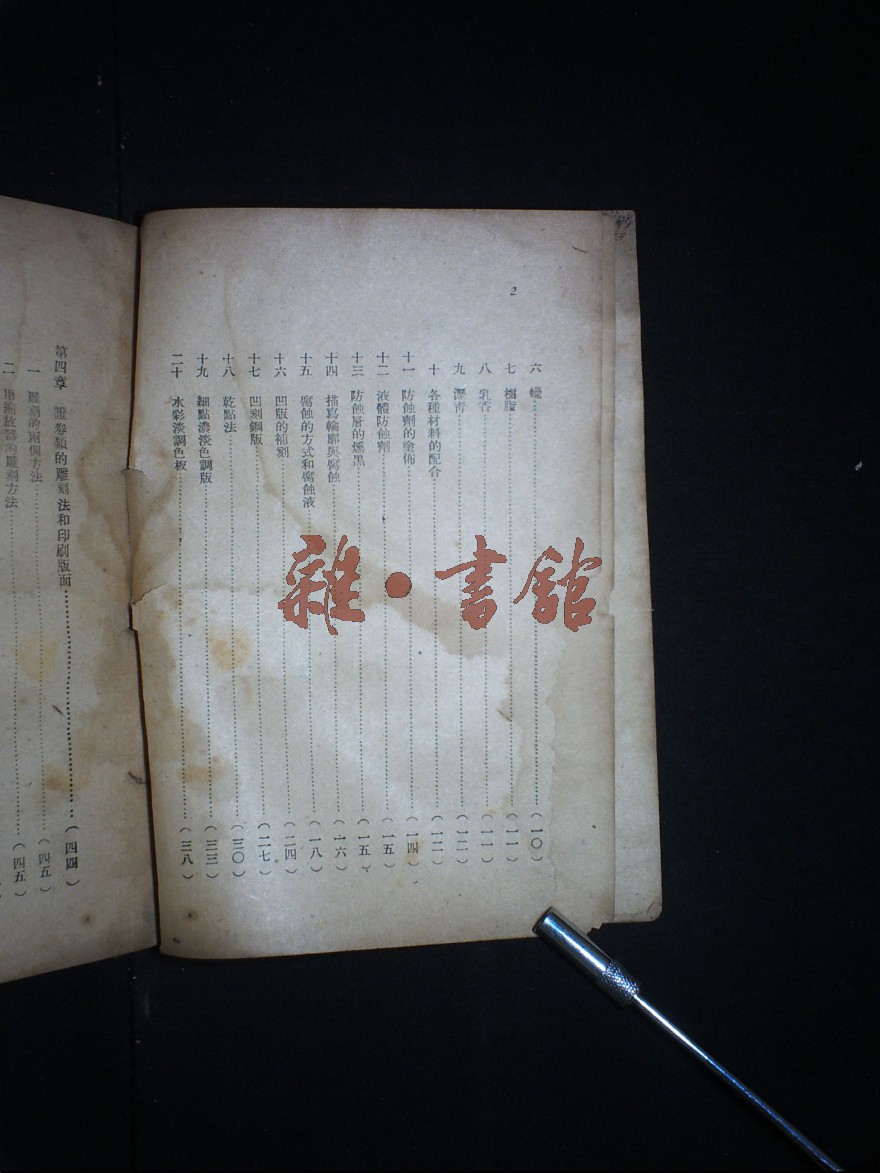 2
六 蠟……(一〇)
七 樹脂……(一一)
八 乳香……(一一)
九 瀝青……(一二)
十 各種材料的配合……(一二)
十一 防蝕劑的塗佈……(一四)
十二 液體防蝕劑……(一五)
十三 防蝕層的燻黑……(一五)
十四 描寫輪廓與腐蝕……(一六)
十五 腐蝕的方式和腐蝕液……(一八)
十六 凹版的補刻……(二四)
十七 凹刻鋼版……(二七)
十八 乾點法……(三〇)
十九 細點濃淡色調版……(三三)
二十 水彩淡調色板……(三八)
第四章 證券類的雕刻法和印刷版面……(四四)
一 雕刻的兩個方法……(四五)
二 用縮放器的雕刻方法……(四五)
雜·書館